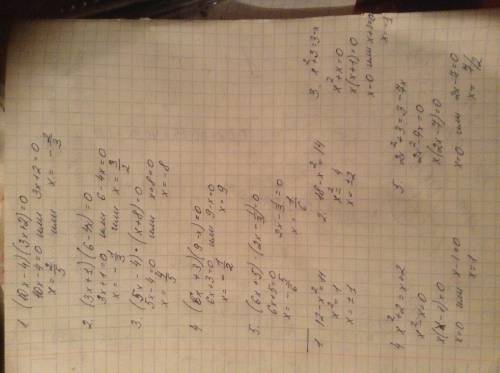 1. (10x-4)(3x+2)=0
10x-4=0 или 3x+2=0
x=2/5 или x=-2/3
2. (3x+1)(6-4x)=0
3x+1=0 или 6-4x=0
x=-1/3 или x=3/2
3. (5x-4)·(x+8)=0
5x-4=0 или x+8=0
x=4/5 x=-8
4. (6x+3)(9-x)=0
6x+3=0 или 9-x=0
x=-1/2 x=9
5. (6x+5)·(2x-1/3)=0
6x+5=0 2x-1/3=0
x=-5/6 x=1/6
1. 12-x²=11
x²=1
x=±1
2. 18-x²=14
x²=4
x=±2
3. x²+3=3-x
x²+x=0
x(x+1)=0
x=0 или x+1=0
x=-1
4. x²+2=x+2
x²-x=0
x(x-1)=0
x=0 или x-1=0
x=1
5. 2x²+3=3-7x
x(2x-7)=0
x=0 или 2x-7=0
x=7/2